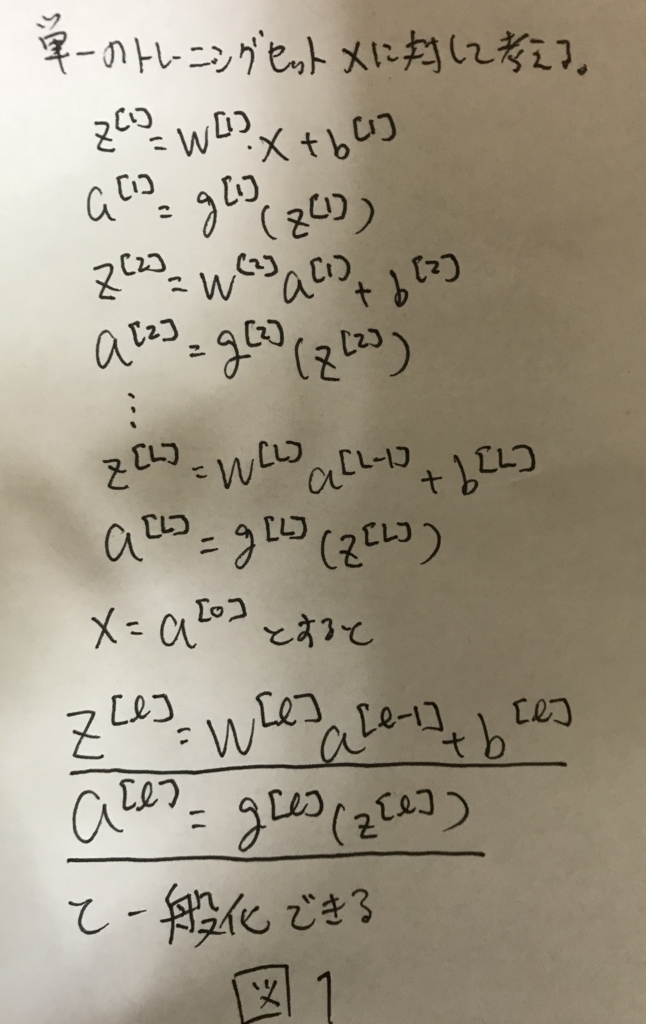 単一のトレーニングセットxに対して考える。
z^[1] = w^[1]・x + b^[1]
a^[1] = g^[1](z^[1])
z^[2] = w^[2]a^[1] + b^[2]
a^[2] = g^[2](z^[2])
⋮
z^[L] = w^[L]a^[L-1] + b^[L]
a^[L] = g^[L](z^[L])
x = a^[0] とすると
z^[l] = w^[l]a^[l-1] + b^[l]
a^[l] = g^[l](z^[l])
て一般化できる
図1